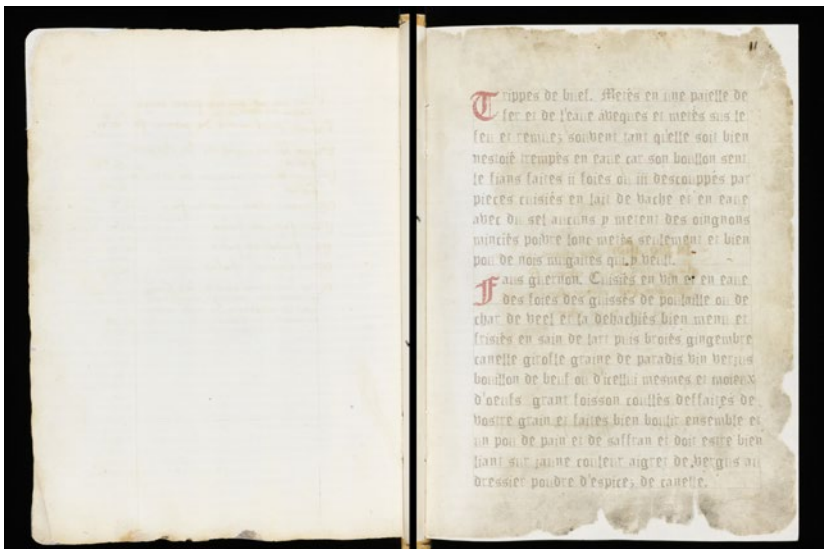 11
Trippes de buef. Metés en une paielle de
fer et de l'eaue aveques et metés sus le
feu et remuez souvent tant qu'elle soit bien
nestoié trempés en eaue car son boullon sent
le fians faites ii foies ou iii descouppés par
pieces cuisiés en lait de vache et en eaue
avec du sel aucuns y metent des oingnons
minciés poivre lonc metés seulement et bien
pou de nois mugaites qui y veult.
Faus guernon. Cuisiés en vin et en eaue
des foies des guissés de poulaille ou de
char de veel et la dehachiés bien menu et
frisiés en sain de lart puis broiés gingembre
canelle girofle graine de paradis vin verjus
boullon de beuf ou d'icellui mesmes et moieux
d'oeufs grant foisson coullés deffaites de
vostre grain et faites bien boulir ensemble et
un pou de pain et de saffran et doit estre bien
liant sur jaune couleur aigret de vergus au
dressier poudre d'espicez de canelle.